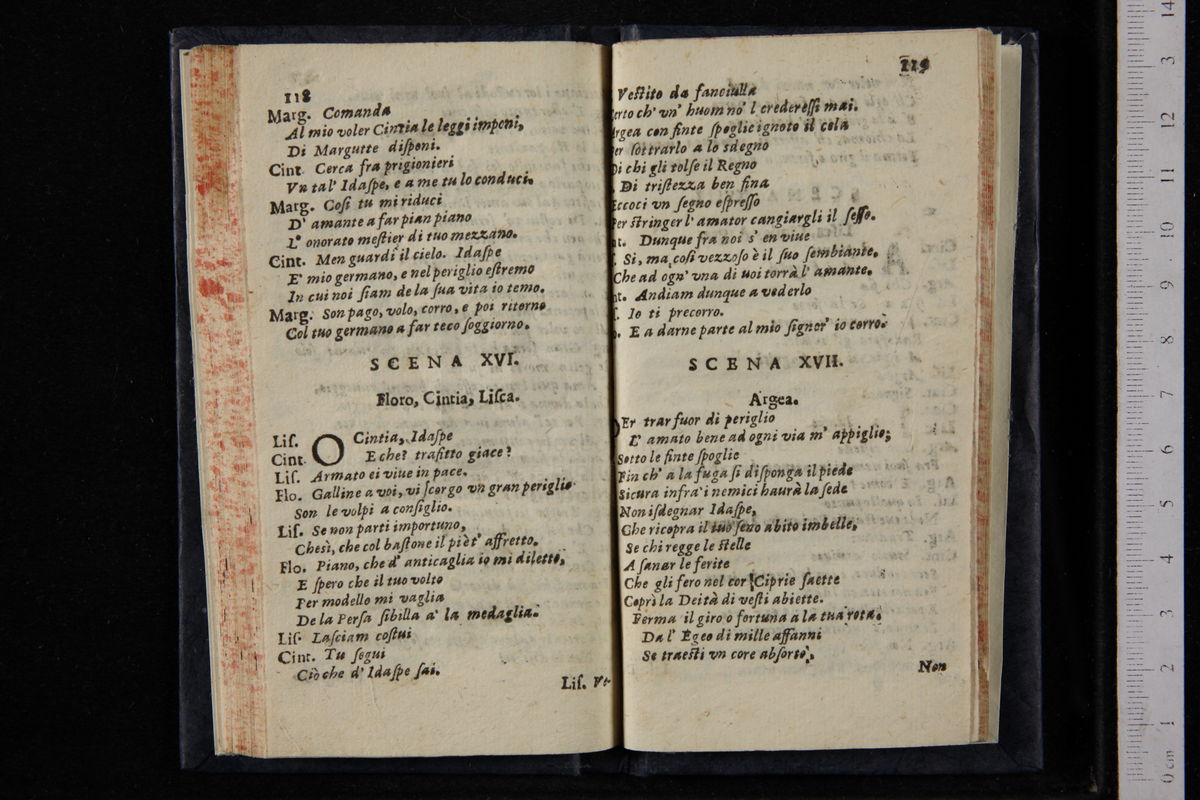 118
Marg. Comanda
Al mio voler Cintia le leggi imponi,
Di Margutte disponi.
Cint. Cerca fra prigionieri
Vn tal' Idaſpe, e a me tu lo conduci.
Marg. Coſi tu mi riduci
D' amante a far pian piano
L' onorato meſtier di tuo mezzano.
Cint. Men guardi il cielo. Idaſpe
E' mio germano, e nel periglio eſtremo
In cui noi ſiam de la ſua vita io temo.
Marg. Son pago, volo, corro, e poi ritorno
Col tuo germano a far teco ſoggiorno.
SCENA XVI.
Floro, Cintia, Liſca.
Liſ. O Cintia, Idaſpe
Cint. E che? trafitto giace?
Liſ. Armato ei viue in pace.
Flo. Galline a voi, vi ſcorgo vn gran periglio
Son le volpi a conſiglio.
Liſ. Se non parti importuno,
Chesì, che col baſtone il piè t' affretto.
Flo. Piano, che d' anticaglia io mi diletto,
E ſpero che il tuo volto
Per modello mi vaglia
De la Perſa ſibilla a' la medaglia.
Liſ. Laſciam coſtui
Cint. Tu ſegui
Ciò che d' Idaſpe ſai.
Liſ. Ve-
119
Veſtito da fanciulla
erto ch' vn' huom no' l credereſſi mai.
rgea con finte ſpoglie ignoto il cela
er ſottrarlo a lo sdegno
Di chi gli tolſe il Regno
. Di triſtezza ben fina
Eccoci vn ſegno eſpreſſo
Per ſtringer l' amator cangiargli il ſeſſo.
nt. Dunque fra noi s' en viue
. Si, ma coſi vezzoſo è il ſuo ſembiante,
Che ad ogn' vna di uoi torrà l' amante.
nt. Andiam dunque a vederlo
ſ. Io ti precorro.
o. E a darne parte al mio ſignor' io corro.
SCENA XVII.
Argea.
Er trar fuor di periglio
L' amato bene ad ogni via m' appiglio;
Sotto le finte ſpoglie
Fin ch' a la fuga ſi diſponga il piede
Sicura infra' i nemici haurà la fede
Non iſdegnar Idaſpe,
Che ricopra il tuo ſeno abito imbelle,
Se chi regge le ſtelle
A ſanar le ferite
Che gli fero nel cor Ciprie ſaette
Coprì la Deità di veſti abiette.
Ferma il giro o fortuna a la tua rota.
Da l' Egeo di mille affanni
Se traeſti vn core abſorto,
Non